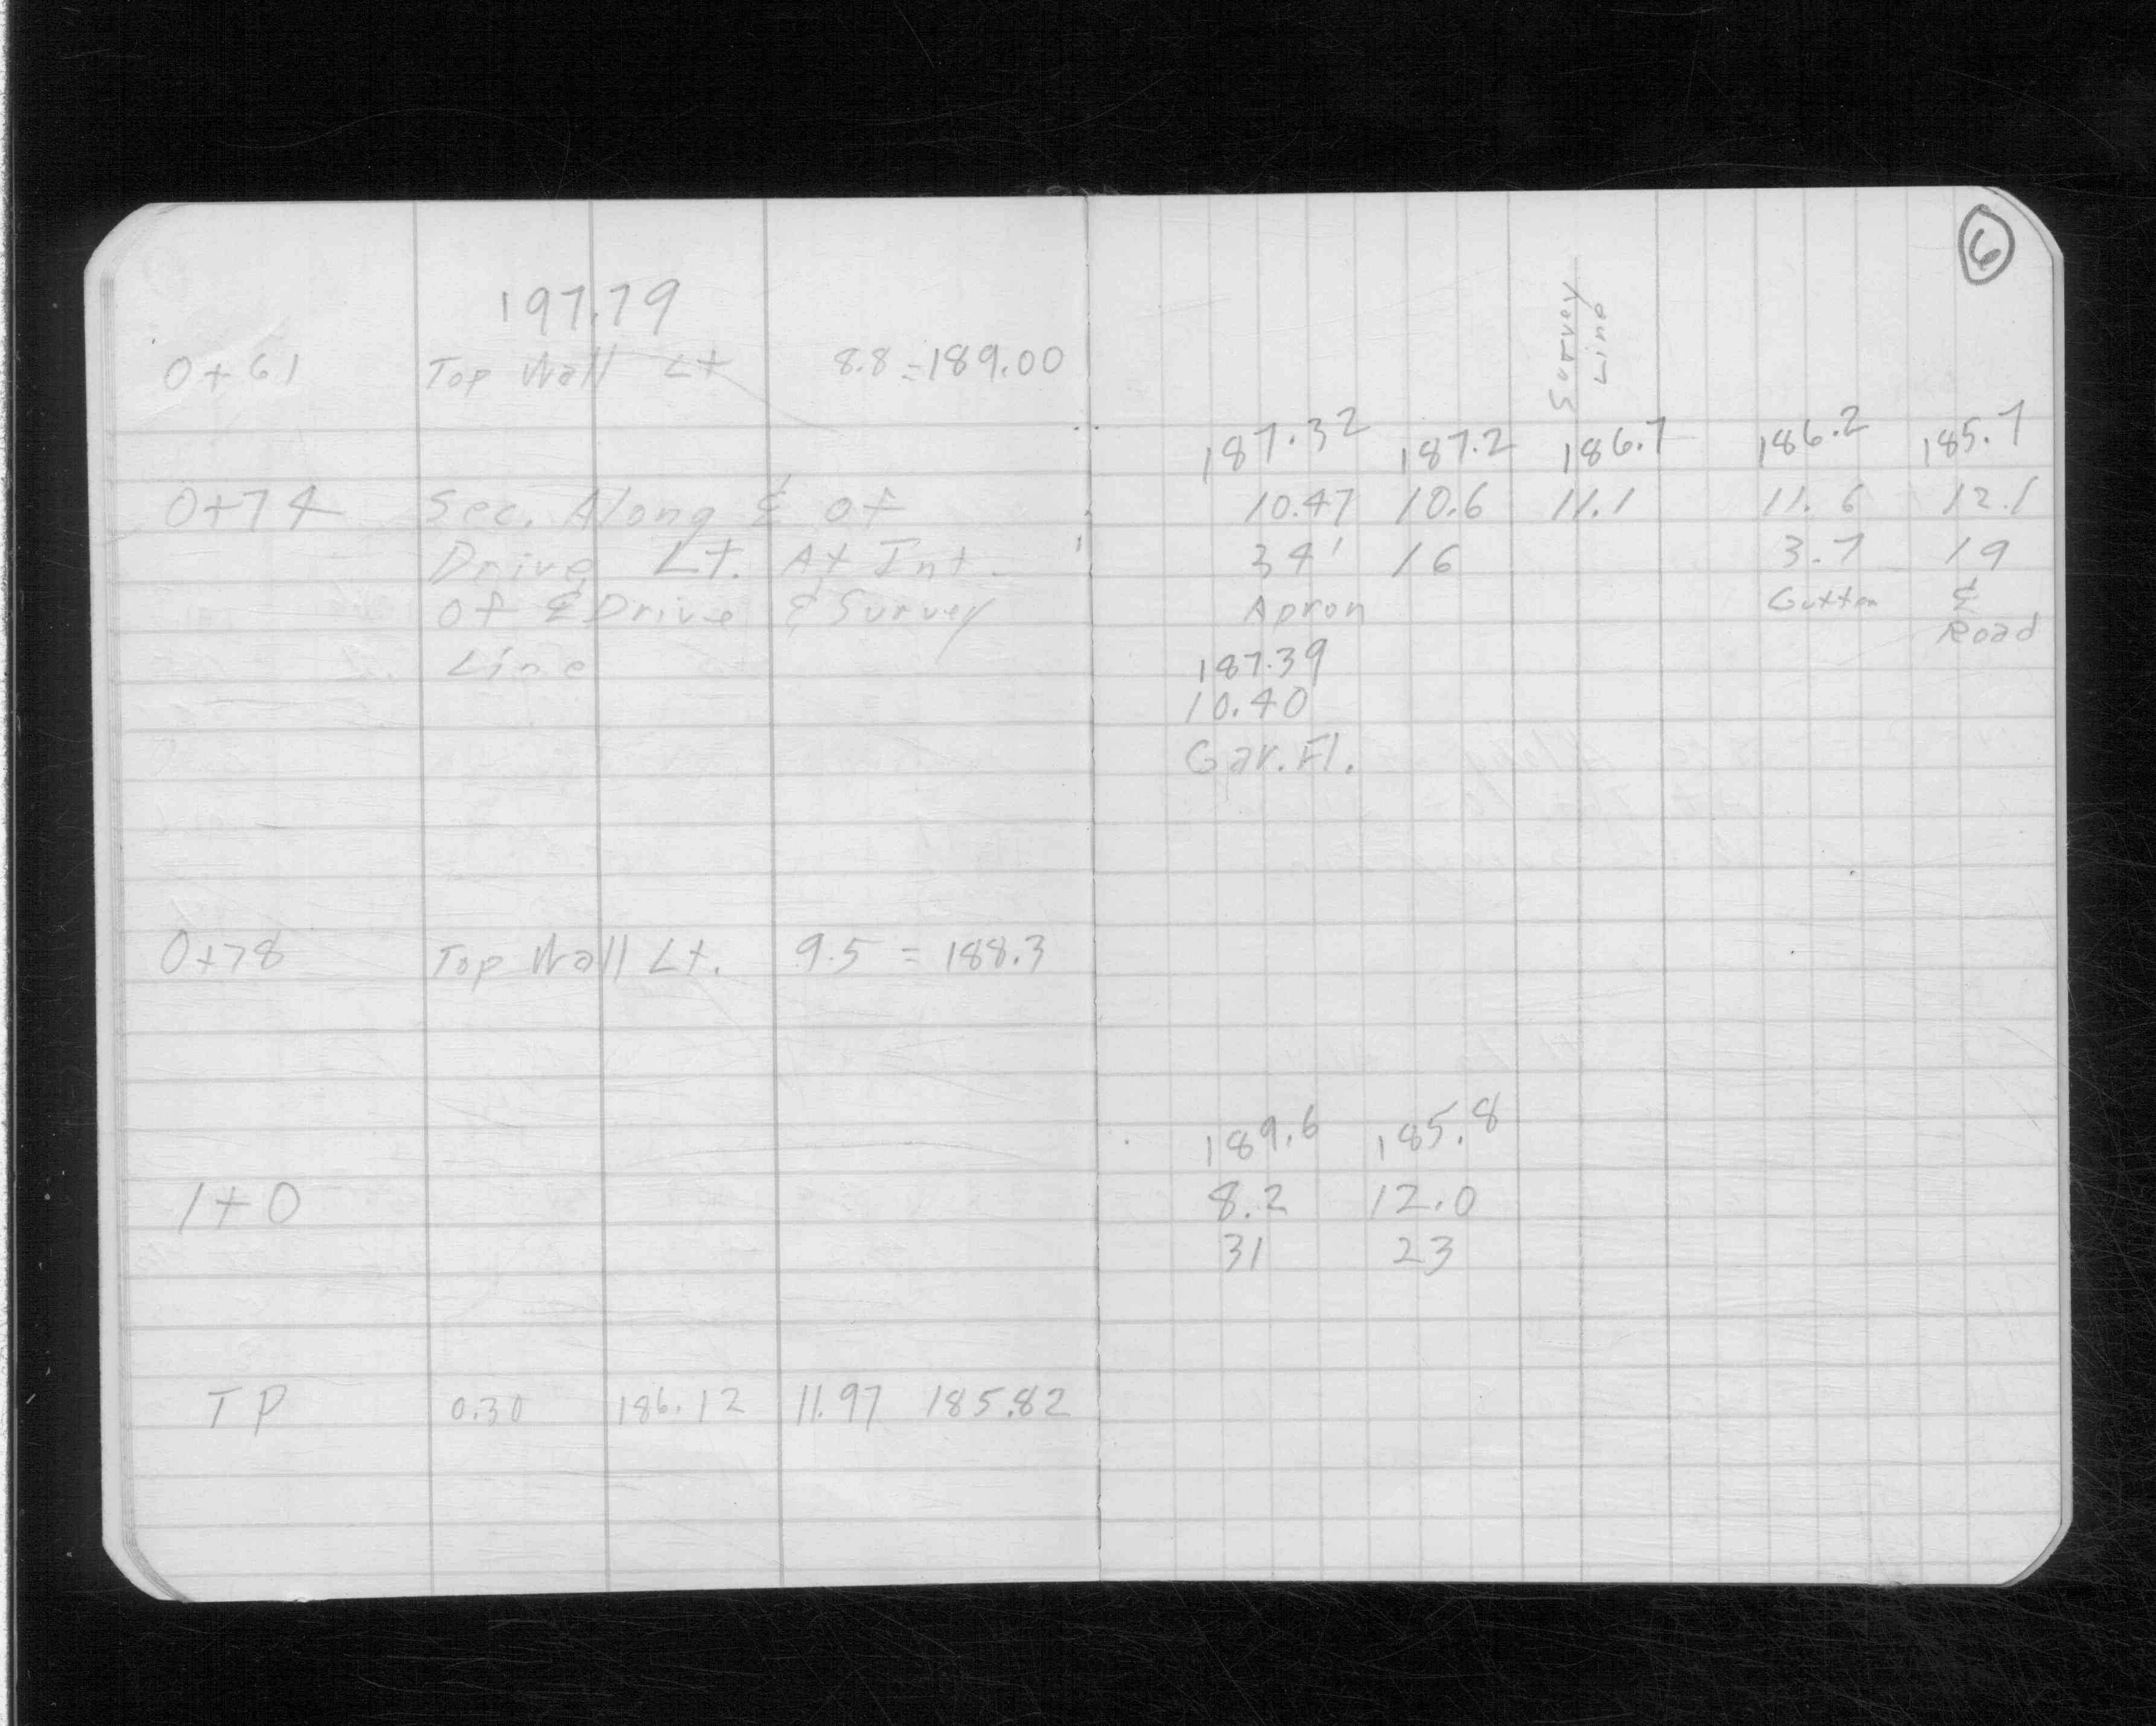 6
197.79
0+61 Top Wall Lt 8.8 = 189.00
Survey
Line
187.32 187.2 186.7 186.2 185.7
0+74 Sec. Along ℄ of 10.47 10.6 11.1 11.6 12.1
Drive Lt. At Int. 34' 16 3.7 19
of ℄ Drive ℄ Survey Apron Gutter ℄
Line Road
187.39
10.40
Gar. Fl.
0+78 Top Wall Lt. 9.5 = 188.3
189.6 185.8
1+0 8.2 12.0
31 23
TP 0.30 186.12 11.97 185.82